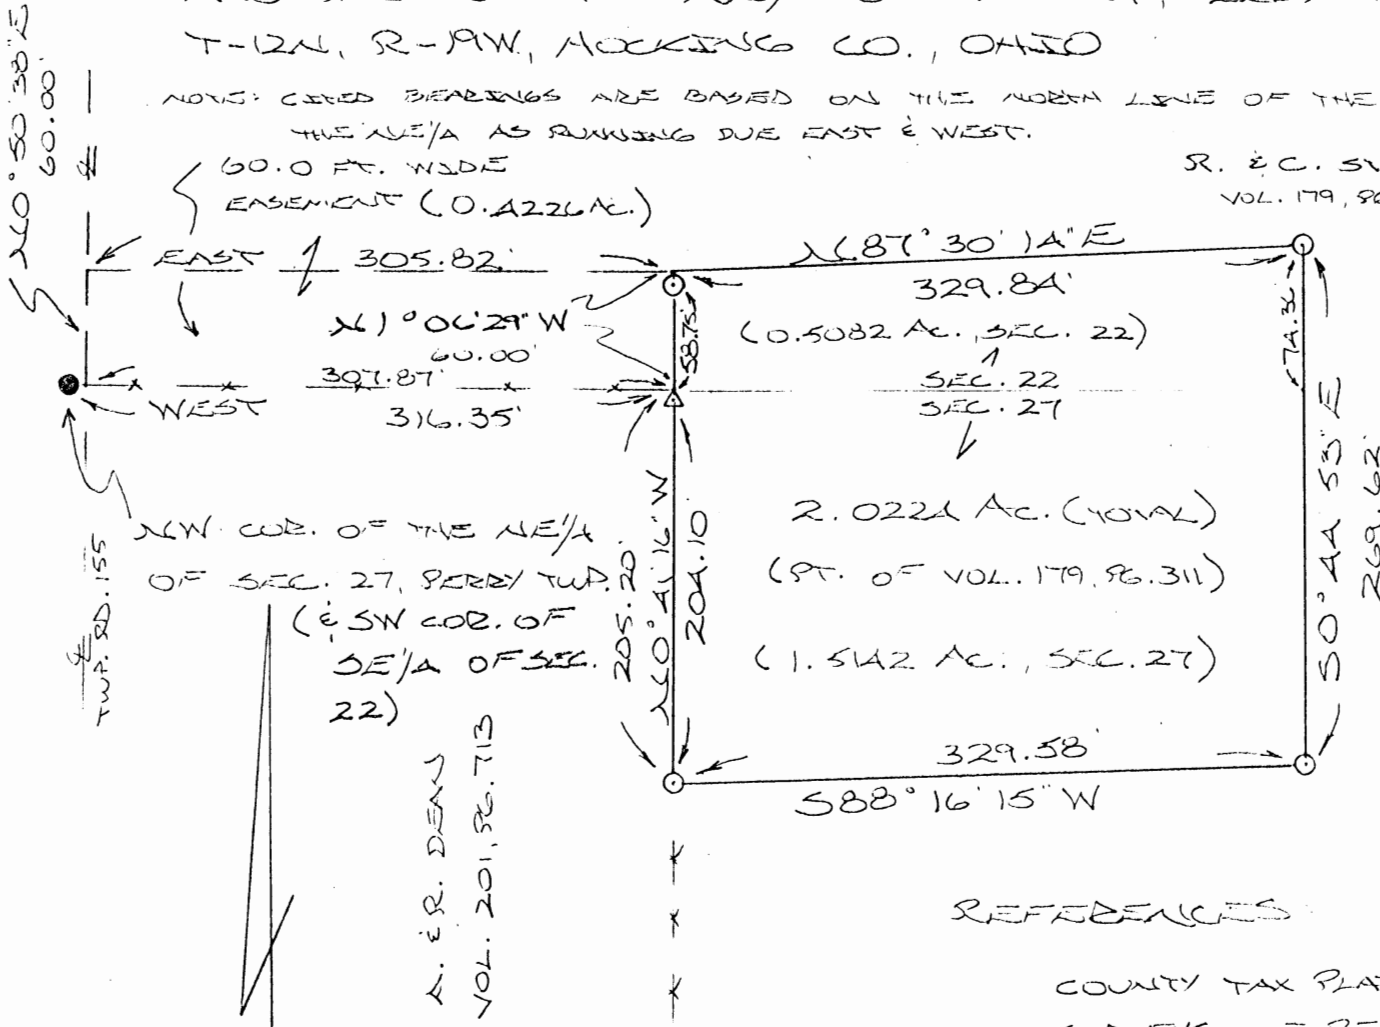 T-12N, R-19W, HOCKING CO., OHIO
NOTE: CITED BEARINGS ARE BASED ON THE NORTH LINE OF THE
THE NE1/4 AS RUNNING DUE EAST & WEST.
N0°50'30"E
60.00'
60.0 FT. WIDE
EASEMENT (0.4226 AC.)
R. & C.
VOL. 179,
EAST 305.82'
N87°30'14"E
329.84'
N1°06'29"W
60.00'
58.75'
(0.5082 AC., SEC. 22)
74.36'
307.87'
WEST
316.35'
SEC. 22
SEC. 27
NW COR. OF THE NE1/4
OF SEC. 27, PERRY TWP.
(& SW COR. OF
SE1/4 OF SEC.
22)
℄
℄
TWP. RD. 155
205.20'
N0°41'16"W
204.10'
2.0224 AC. (TOTAL)
(PT. OF VOL. 179, PG. 311)
(1.5142 AC., SEC. 27)
S0°44'53"E
269.62'
329.58'
S88°16'15"W
& R. DEAN
VOL. 201, PG. 713
REFERENCES
COUNTY TAX PLA